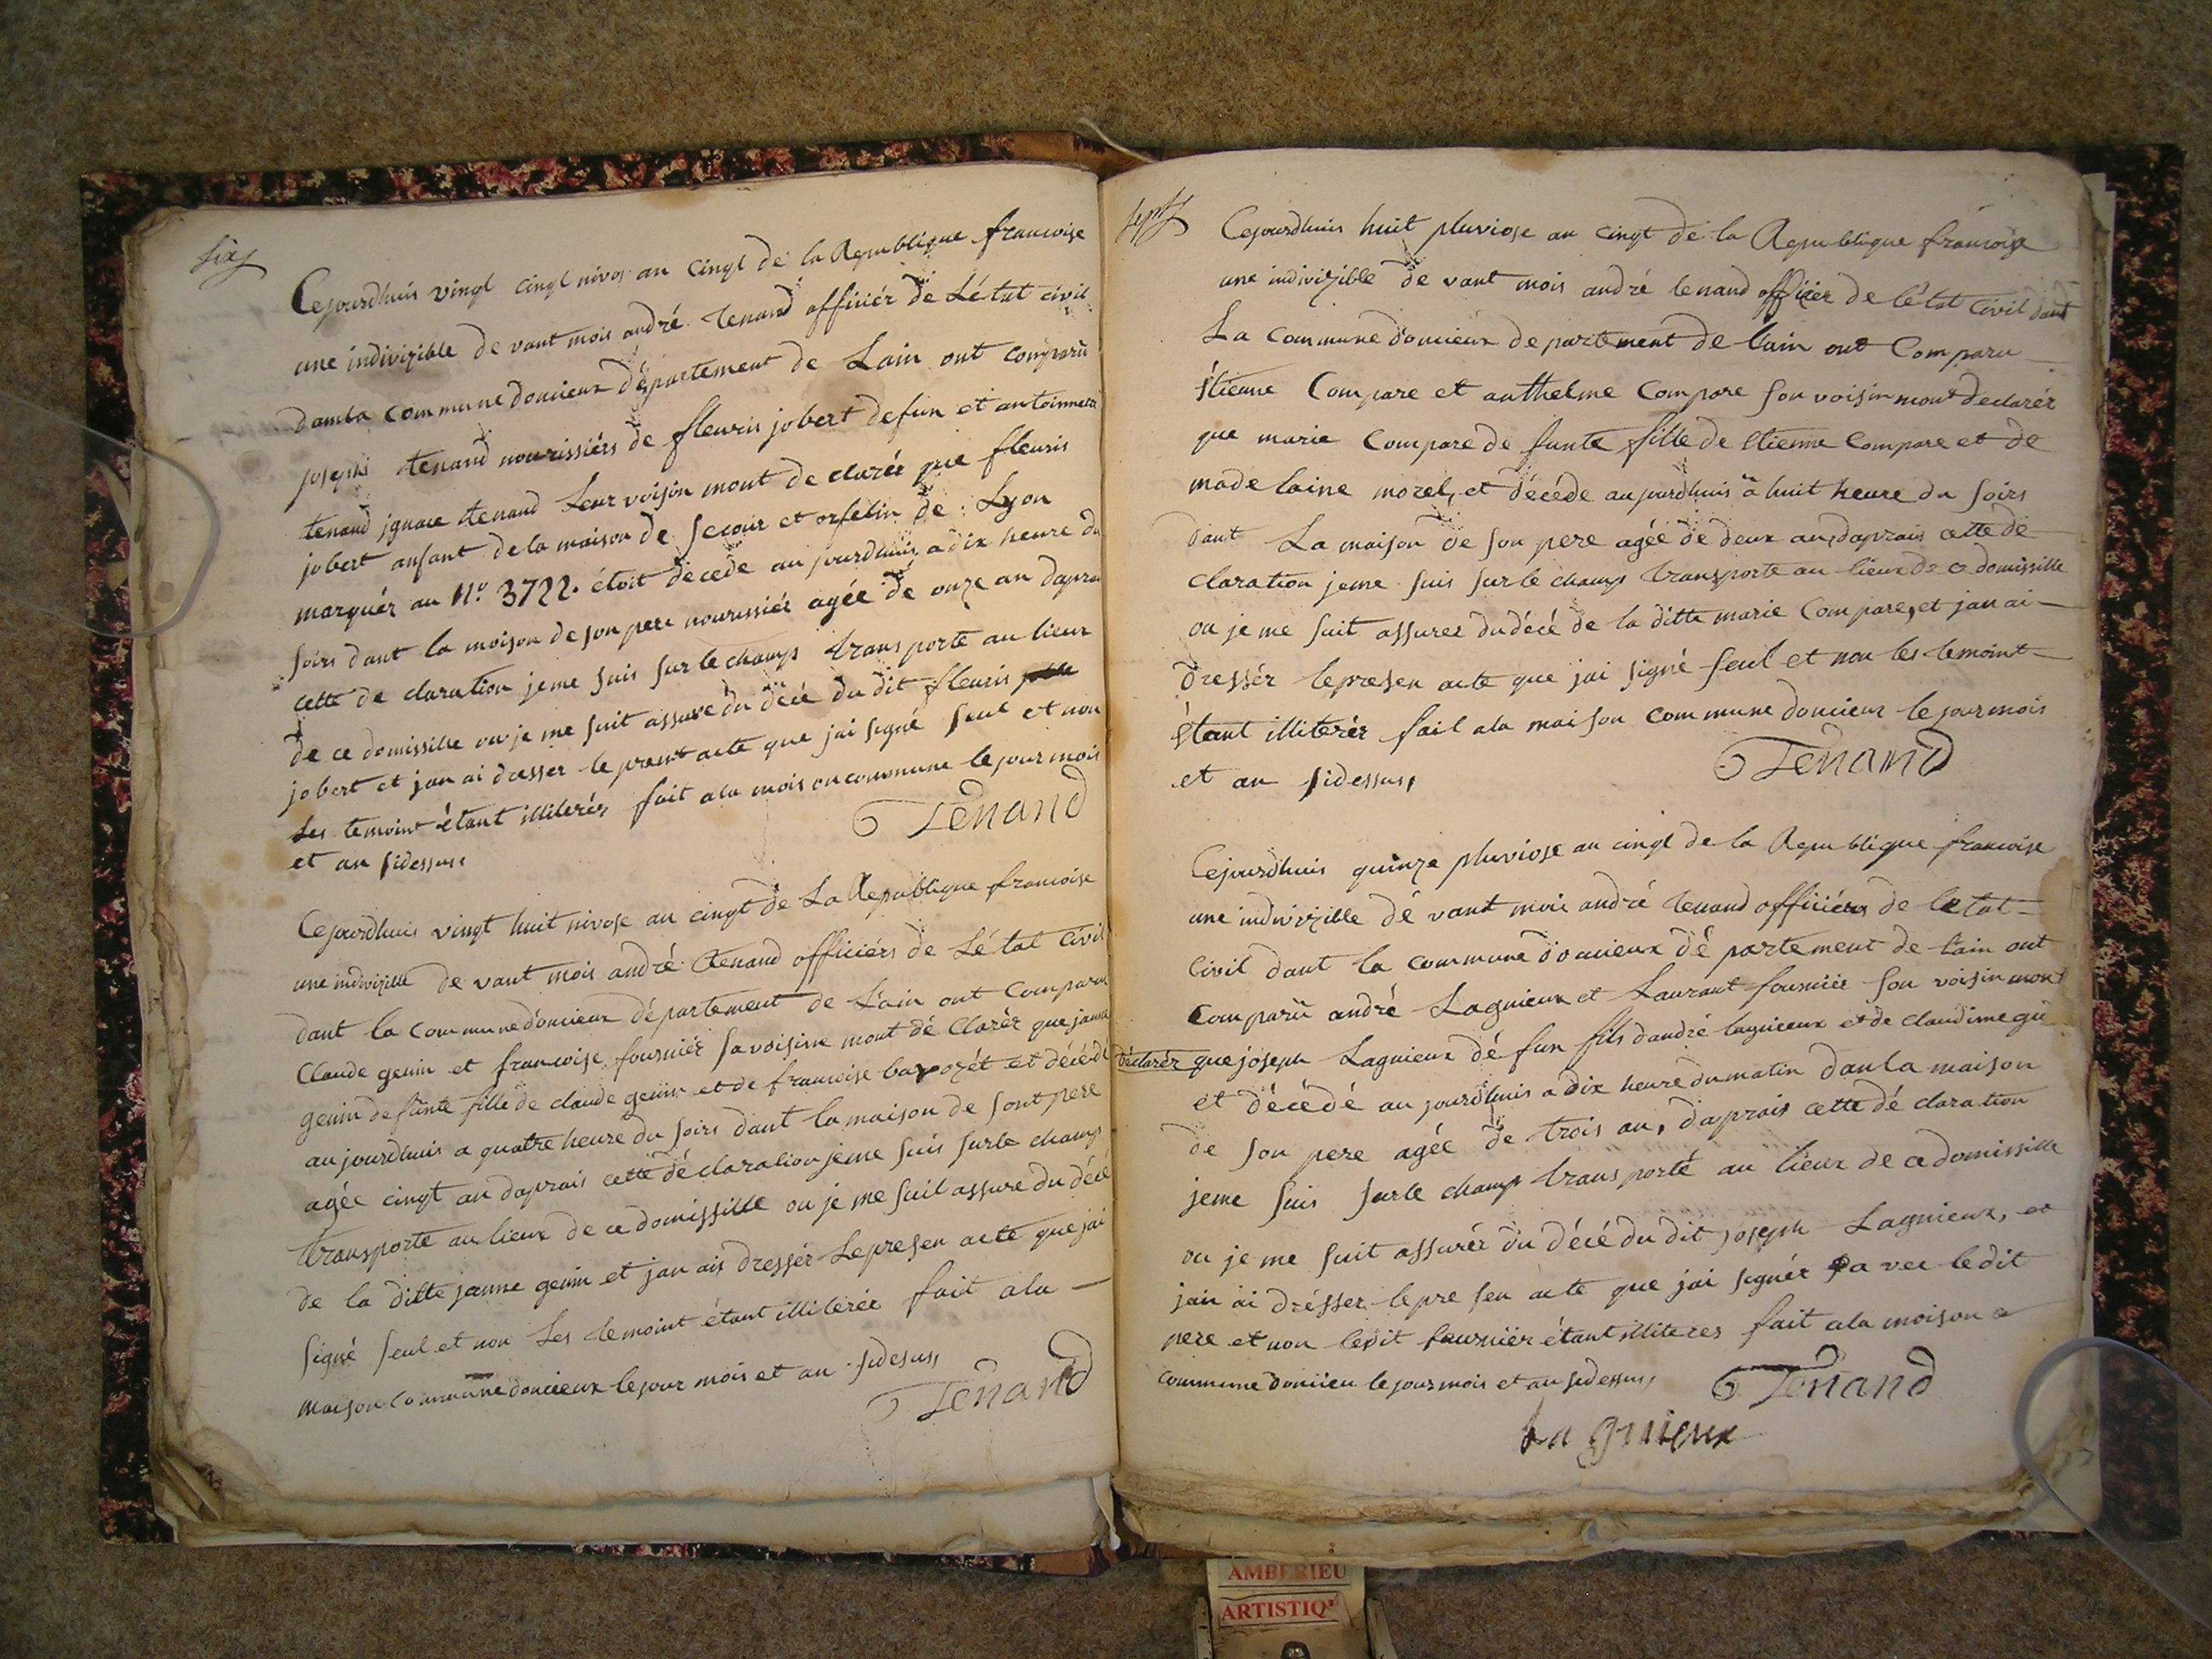 six
Cejourdhuis vingt cingt nivos an cingt de la Republique francoise
une indivizible de vant mois andré tenand officiér de Létat civil
damla commune doncieux département de Lain ont comparu
joseph tenand nourissiérs de fleuris jobert defun et antoinne
tenand jgnace tenand Leur voisin mont de clarér que fleuris
jobert anfant de la maison de secour et orfelin de Lyon
marquér au No. 3722. étoit decede au jourdhuis a dix heure du
soirs dant la moison de son pere nourissiér agée de onze an daprai
cette de claration jeme suis sur le champs transporte au lieux
de ce domissille ou je me suit assuré du décé du dit fleuris
jobert et jan ai dresser le present acte que jai signé seul et non
Les temoint étant illiterér fait ala moison commune lejour mois
et an sidessus,
Tenand
Cejourdhuis vingt huit nivose an cingt de La Republique francoise
une indivizille de vant mois andré tenand officiérs de Létat Civil
dant la commune doncieux département de L'ain ont Comparu
Claude genin et francoise fourniér sa voisine mont dé Clarér que janne
genin defunte fille de claude genin et de francoise bavozét et décéde
aujourdhuis a quatre heure du soirs dant la maison de sont pere
agée cingt an daprais cette déclaration jeme suis surle champ
transporte au lieux de ce domissille ou je me suit assure du décé
de la ditte janne genin et jan ais dressér Lepresen acte que jai
signé seul et non Les temoint étant illiterée fait ala —
maison commune doncieux lejour mois et an sidesus,
Tenand
sept
Cejourdhuis huit pluviose an cingt de la Republique francoise
une indivizible de vant mois andré tenand officier de létat Civil dant
La commune doncieux departement de lain ont Comparu —
étienne Compare et anthelme Compare son voisin mont declarér
que marie Compare de funte fille de etienne Compare et de
made laine morel, et décéde aujourdhuis a huit heure du soirs
dant La maison de son pere agée de deux an, daprais cette de
claration jeme suis sur le champs transporte au lieux de ce domissille
ou je me suit assurer du décé de la ditte marie Compare, et jan ai —
dressér lepresen acte que jai signé seul et non les temoint —
étant illiterér fait ala maison commune doncieux le jour mois
et an sidessus,
Tenand
Cejourdhuis quinze pluviose an cingt de la Republique francoise
une indivizible dé vant mois andré tenand officiérs de letat —
Civil dant la commune doncieux dé partement de l'ain ont
comparu andré Lagnieux et Laurant fourniér son voisin mont
déclarér que joseph Lagnieux dé fun fils dandré lagnieux et de claudine gu
et décédé au jourdhuis a dix heure du matin dan la maison
de son pere agée de trois an, daprais cette dé claration
jeme suis surle champ transporté au lieux de ce domissille
ou je me suit assurér du décé du dit joseph Lagnieux, et
jan ai drésser lepre sen acte que jai signér a vec ledit
pere et non ledit fourniér étant illiteres fait ala moison
commune doncieu lejour mois et an sidessus,
Tenand
La gnieux
AMBERIEU
ARTISTIQ